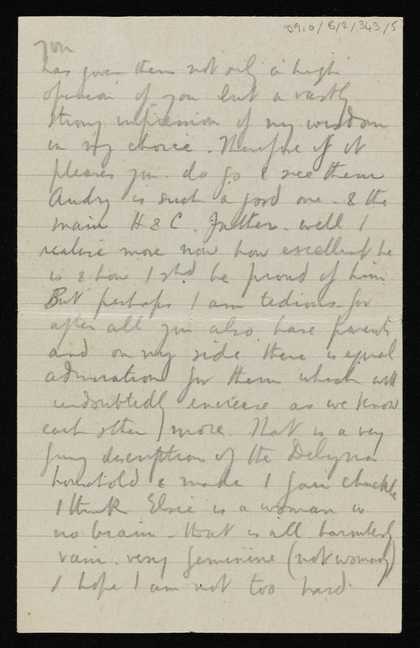 0910/6/2/343/5
you
has given them not only a high
opinion of you but a vastly
strong impression of my wisdom
in my choice. Therefore if it
pleases you do go & see them
Audry is such a good one - & the
main H & C. Father - well I
realise more now how excellent he
is & how I shd be proud of him.
But perhaps I am tedious for
after all you also have parents
and on my side there is equal
admiration for them which will
undoubtedly increase as we know
each other more. That is a very
funny description of the
household & made I fair chuckle
I think Elsie is a woman w
no brain - that is all harmlessly
vain. very feminine (not womanly)
I hope I am not too hard.